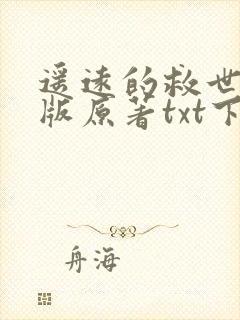 遥远的救世
版原著txt下
舟海